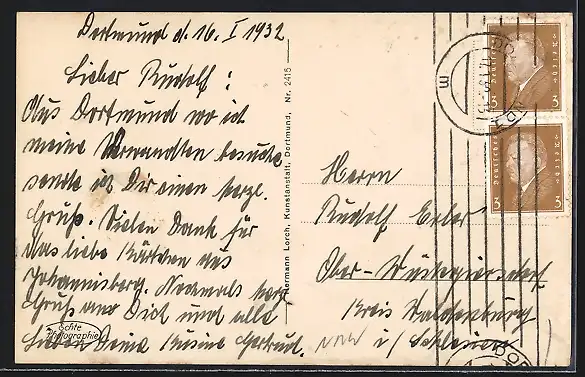 Dortmund d. 16. I 1932
Lieber Rudolf!
Aus Dortmund wo ich
meine Verwandten besuche
sende ich Dir einen herzl.
Gruß. Vielen Dank für
das liebe Kärtchen aus
Johannisberg. Nochmals herzl.
Gruß an Dich und alle
Lieben Deine Kusine Gertrud.
Echte
Photographie
Hermann Lorch, Kunstanstalt, Dortmund, Nr. 2415
Herrn
Rudolf Erber
Ober-Wüstegiersdorf
Kreis Waldenburg
i/ Schlesien
Deutsches Reich
3 3
Deutsches Reich
3 3
DORTMUND
m
DOR